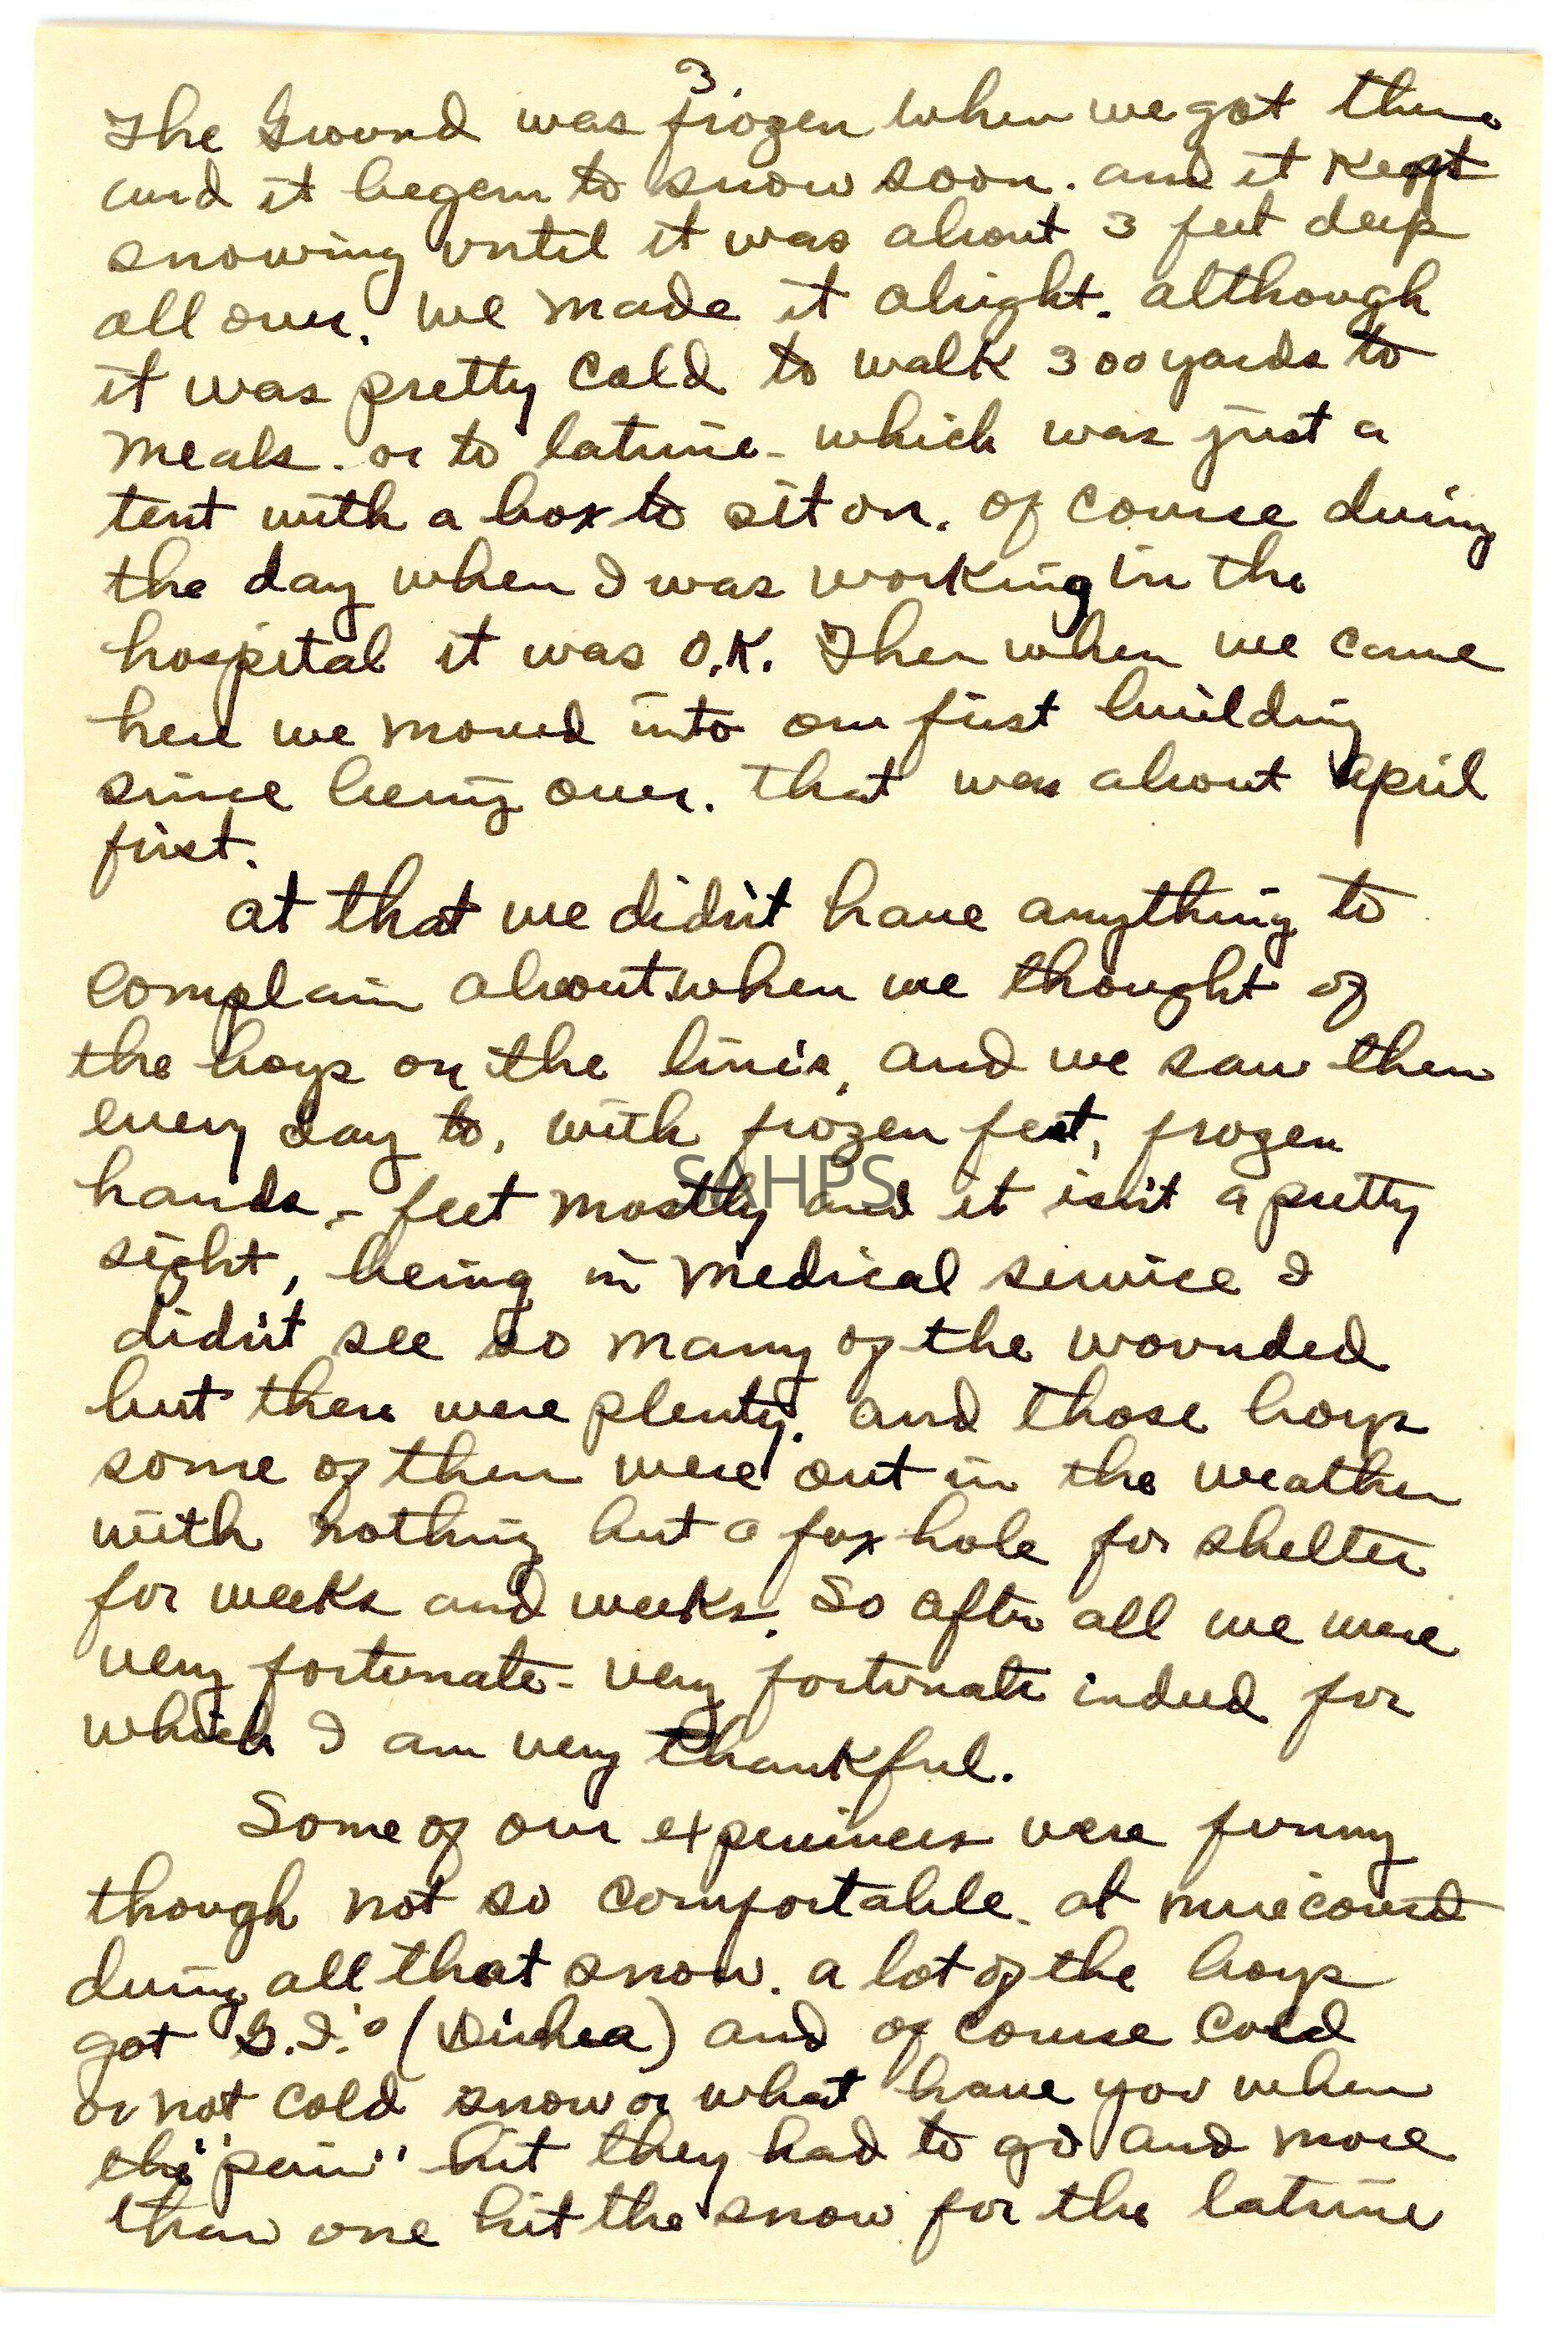 3.
The Ground was frozen when we got there
and it began to snow soon. and it kept
snowing until it was about 3 feet deep
all over. We made it alright. although
it was pretty cold to walk 300 yards to
meals. or to latrine - which was just a
tent with a box to sit on. Of course during
the day when I was working in the
hospital it was O.K. Then when we came
here we moved into our first building
since being over. that was about April
first.
At that we didn't have anything to
complain about when we thought of
the boys on the lines, and we saw them
every day to, with frozen feet, frozen
hands, - feet mostly and it isn't a pretty
SAHPS
sight, being in Medical service I
didn't see so many of the wounded
but there were plenty. And those boys
some of them were out in the weather
with nothing but a fox hole for shelter
for weeks and weeks. So after all we were
very fortunate - very fortunate indeed for
which I am very thankful.
Some of our experiences were funny
though not so comfortable. at Mirecourt
during all that snow. a lot of the boys
got G.I.'s (Dirhea) and of course cold
or not cold snow or what have you when
the "pain" hit they had to go and more
than one hit the snow for the latrine